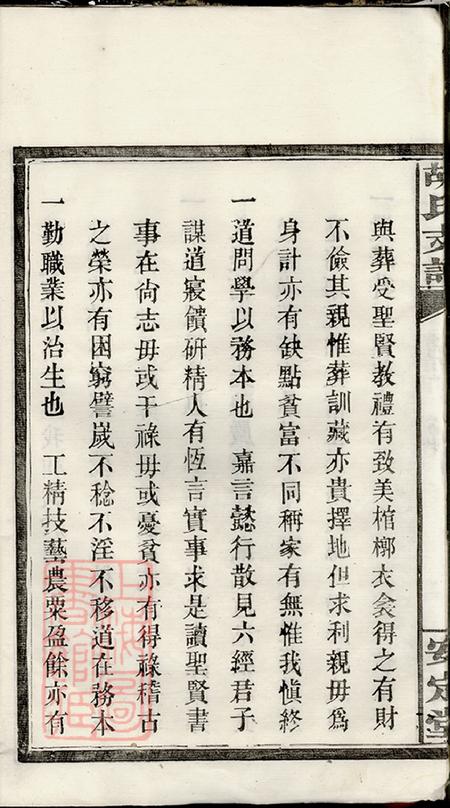 與葬受聖賢教禮有致美棺槨衣衾得之有財
不儉其親惟葬訓藏亦貴擇地但求利親毋爲
身計亦有缺點貧富不同稱家有無惟我愼終
一道問學以務本也　嘉言懿行散見六經君子
謀道寢饋硏精人有恆言實事求是讀聖賢書
事在尙志毋或干祿毋或憂貧亦有得祿稽古
之榮亦有困窮譬歲不稔不淫不移道在務本
一勤職業以治生也　工精技藝農粟盈餘亦有
胡氏支譜
安定堂